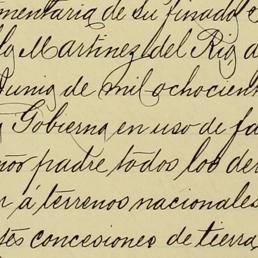 mentaria de su finado
Martinez del Rio
Junio de mil ochocient
Gobierno en uso de fa
ñor padre todos los der
r á terrenos nacionales
tes concesiones de tierra